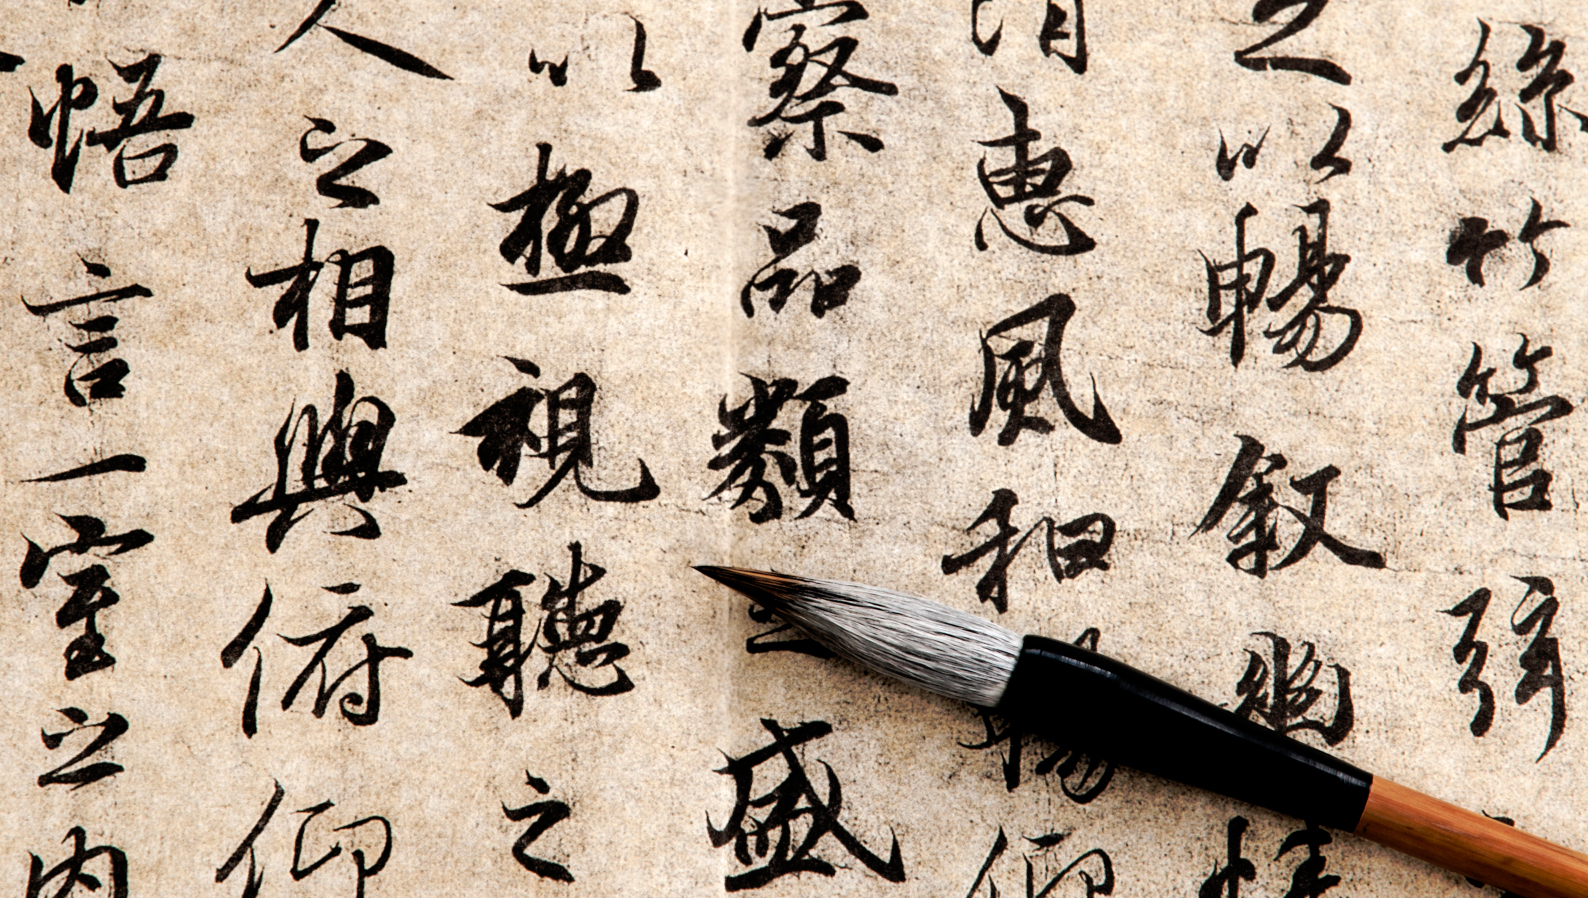 絲竹管弦
以暢叙幽情
清惠風和暢仰
察品類之盛
以極視聽之
人之相與俯仰
悟言一室之内